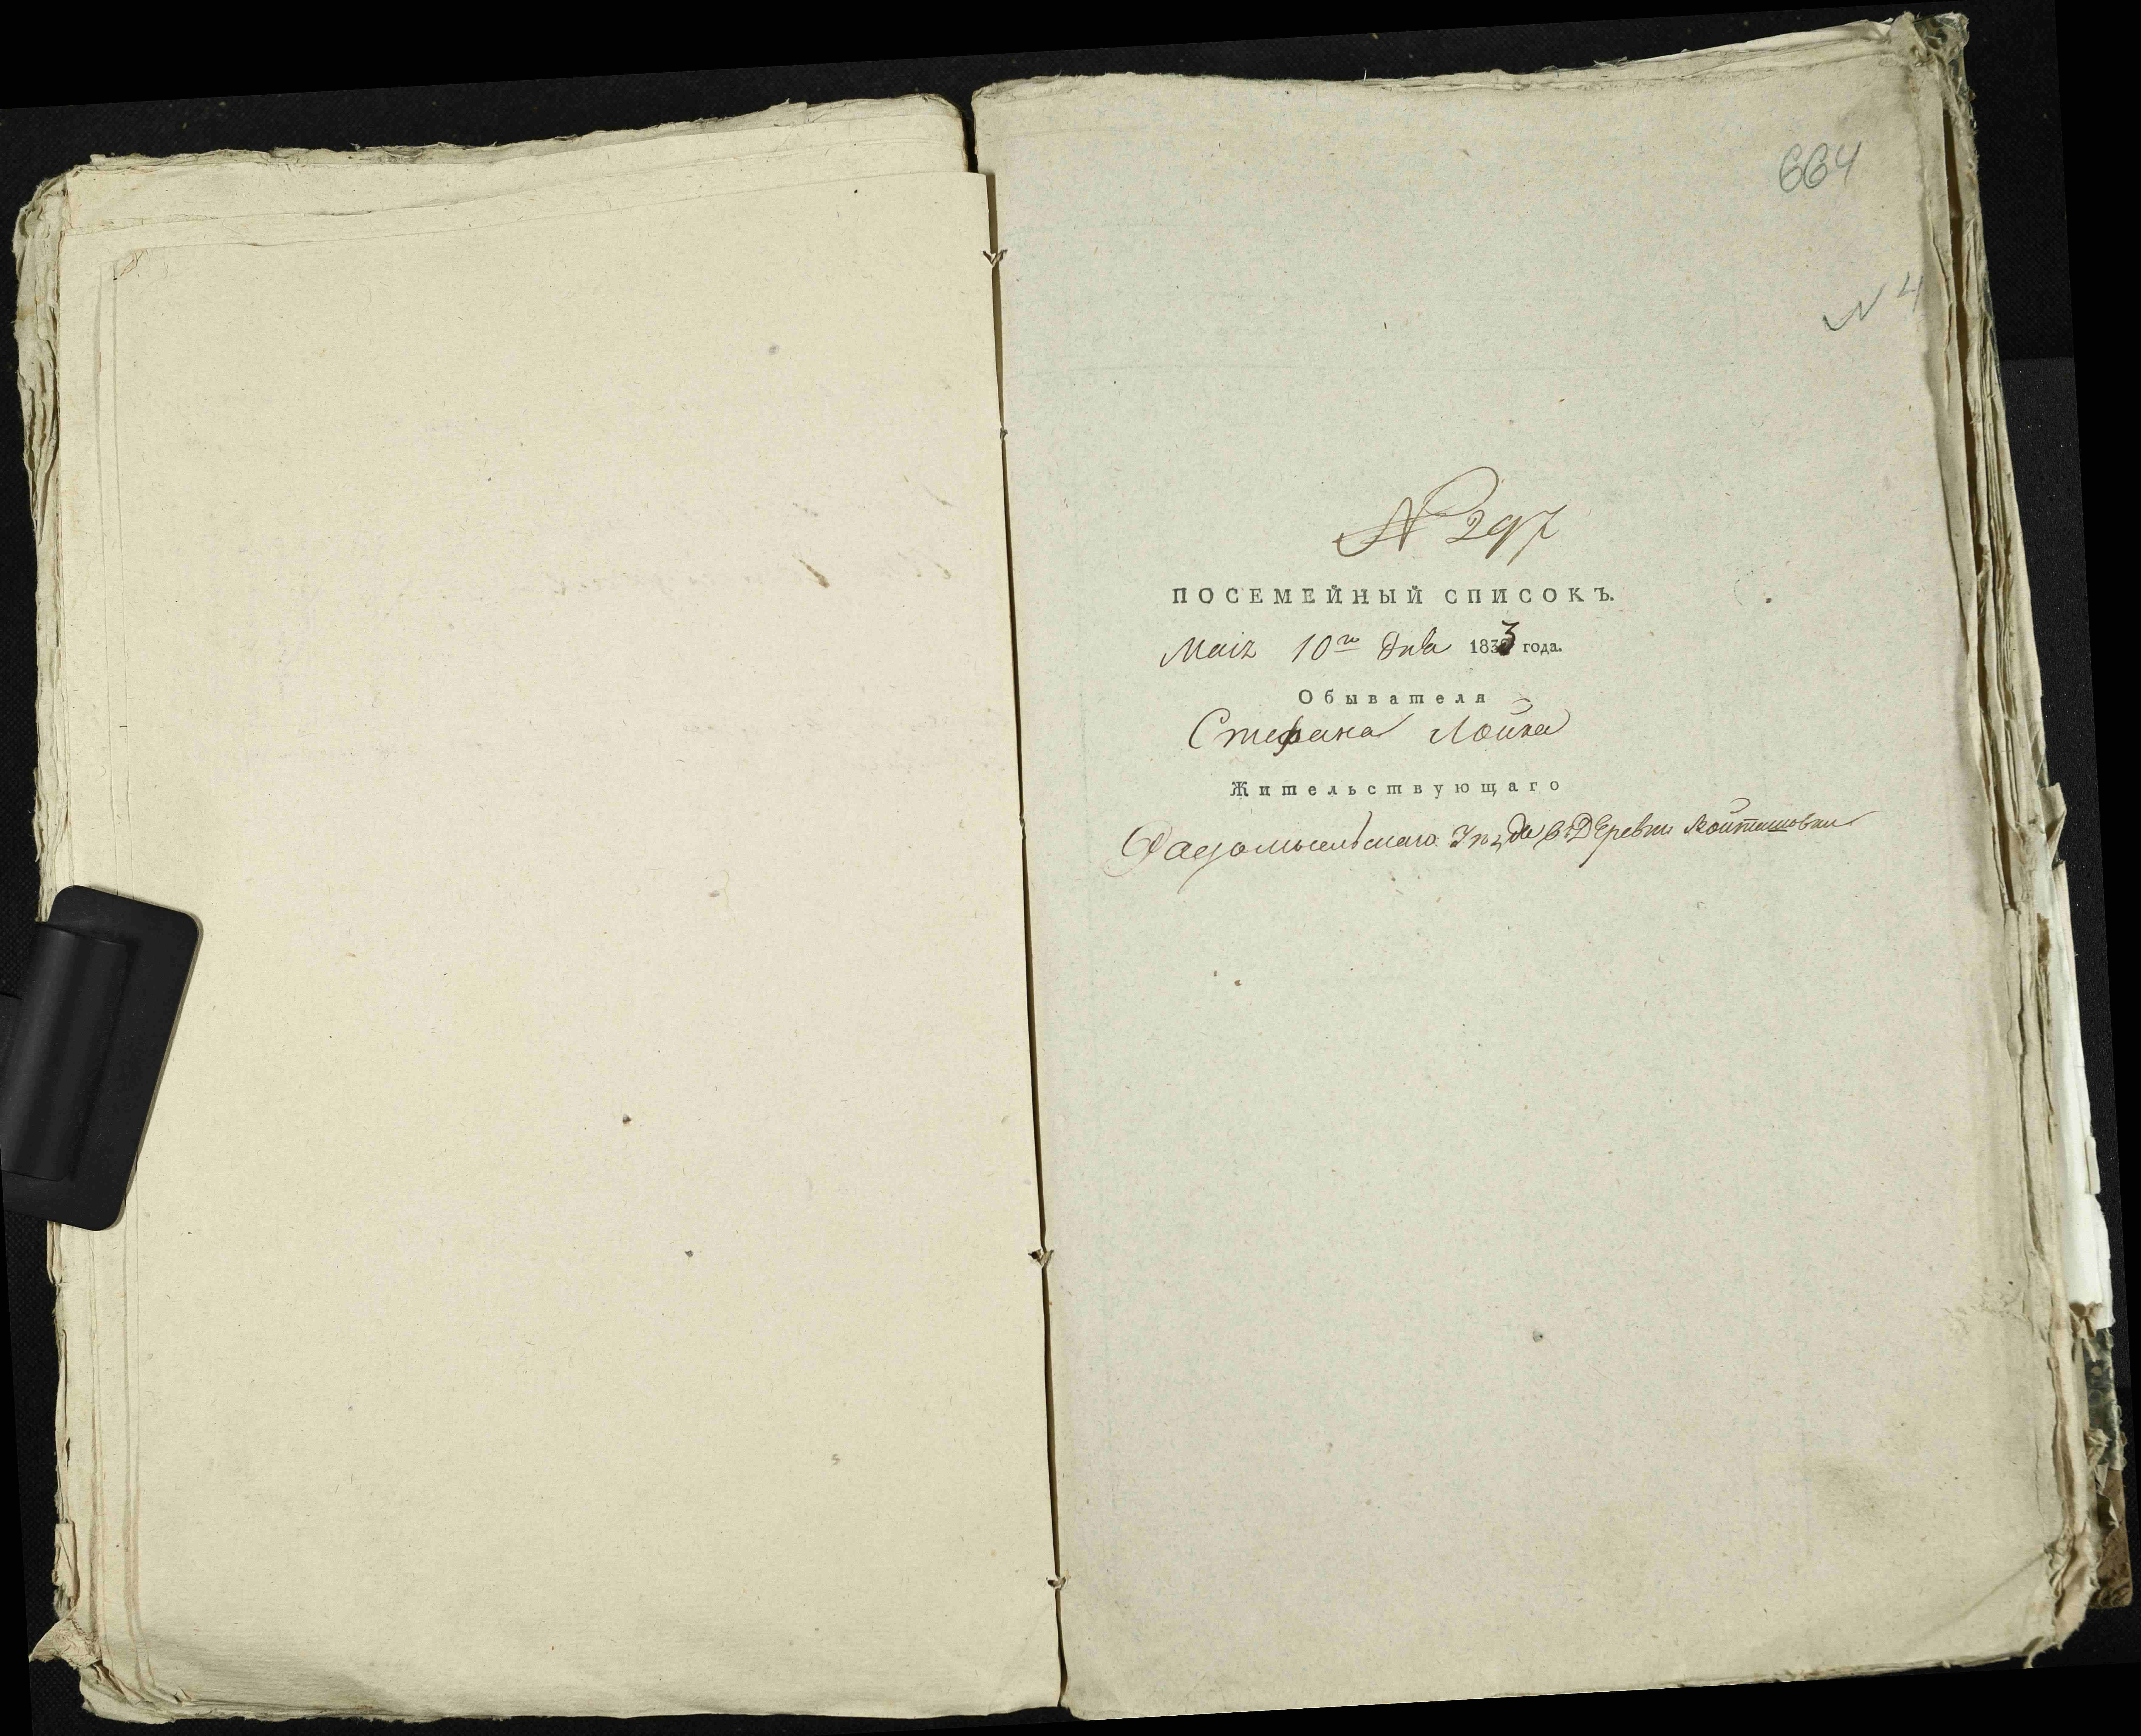 664
N 4
№ 297
ПОСЕМЕЙНЫЙ СПИСОКЪ.
Маія 10го дня 1833 года.
Обывателя
Стефана Лойка
Жительствующаго
Радомысльскаго Уѣзда въ Деревни